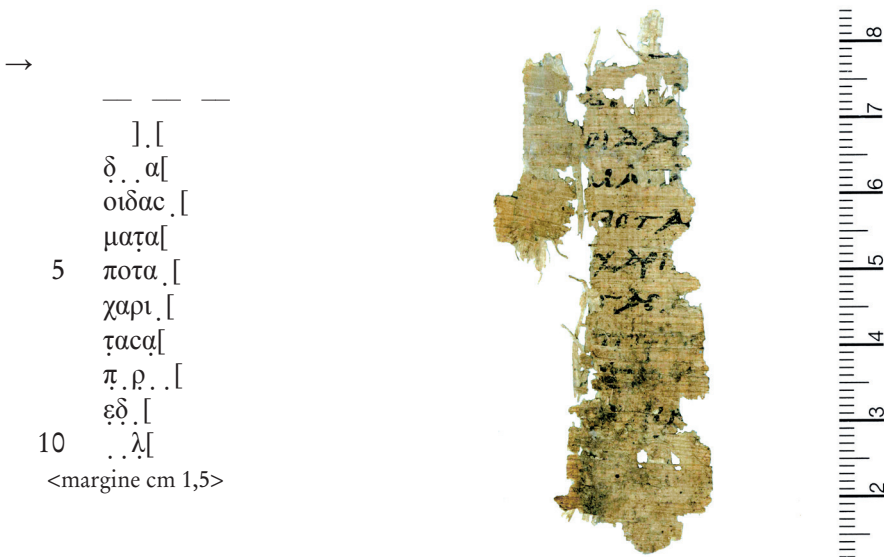 →
— — —
] ̣[
δ̣ ̣ ̣α[
οιδαϲ ̣[
ματ̣α[
5 ποτα ̣[
χαρι ̣[
τ̣αϲα̣[
π̣ ̣ρ̣ ̣ ̣[
ε̣δ̣ ̣[
10 ̣ ̣λ̣[
<margine cm 1,5>
8
7
6
5
4
3
2